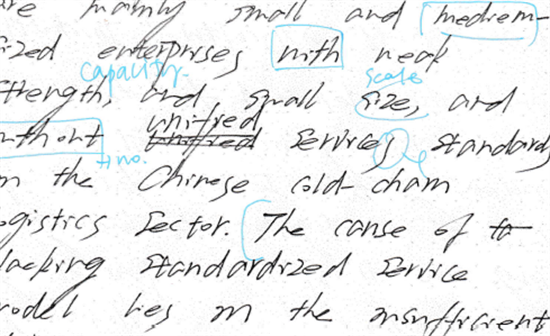 are mainly small and medium-
sized enterprises with weak
capacity. scale
strength, and small size, and
unifred
without unifred services standards
→no.
in the Chinese cold-chain
logistics sector. [The cause of to
lacking standardized service
model lies in the insufficient